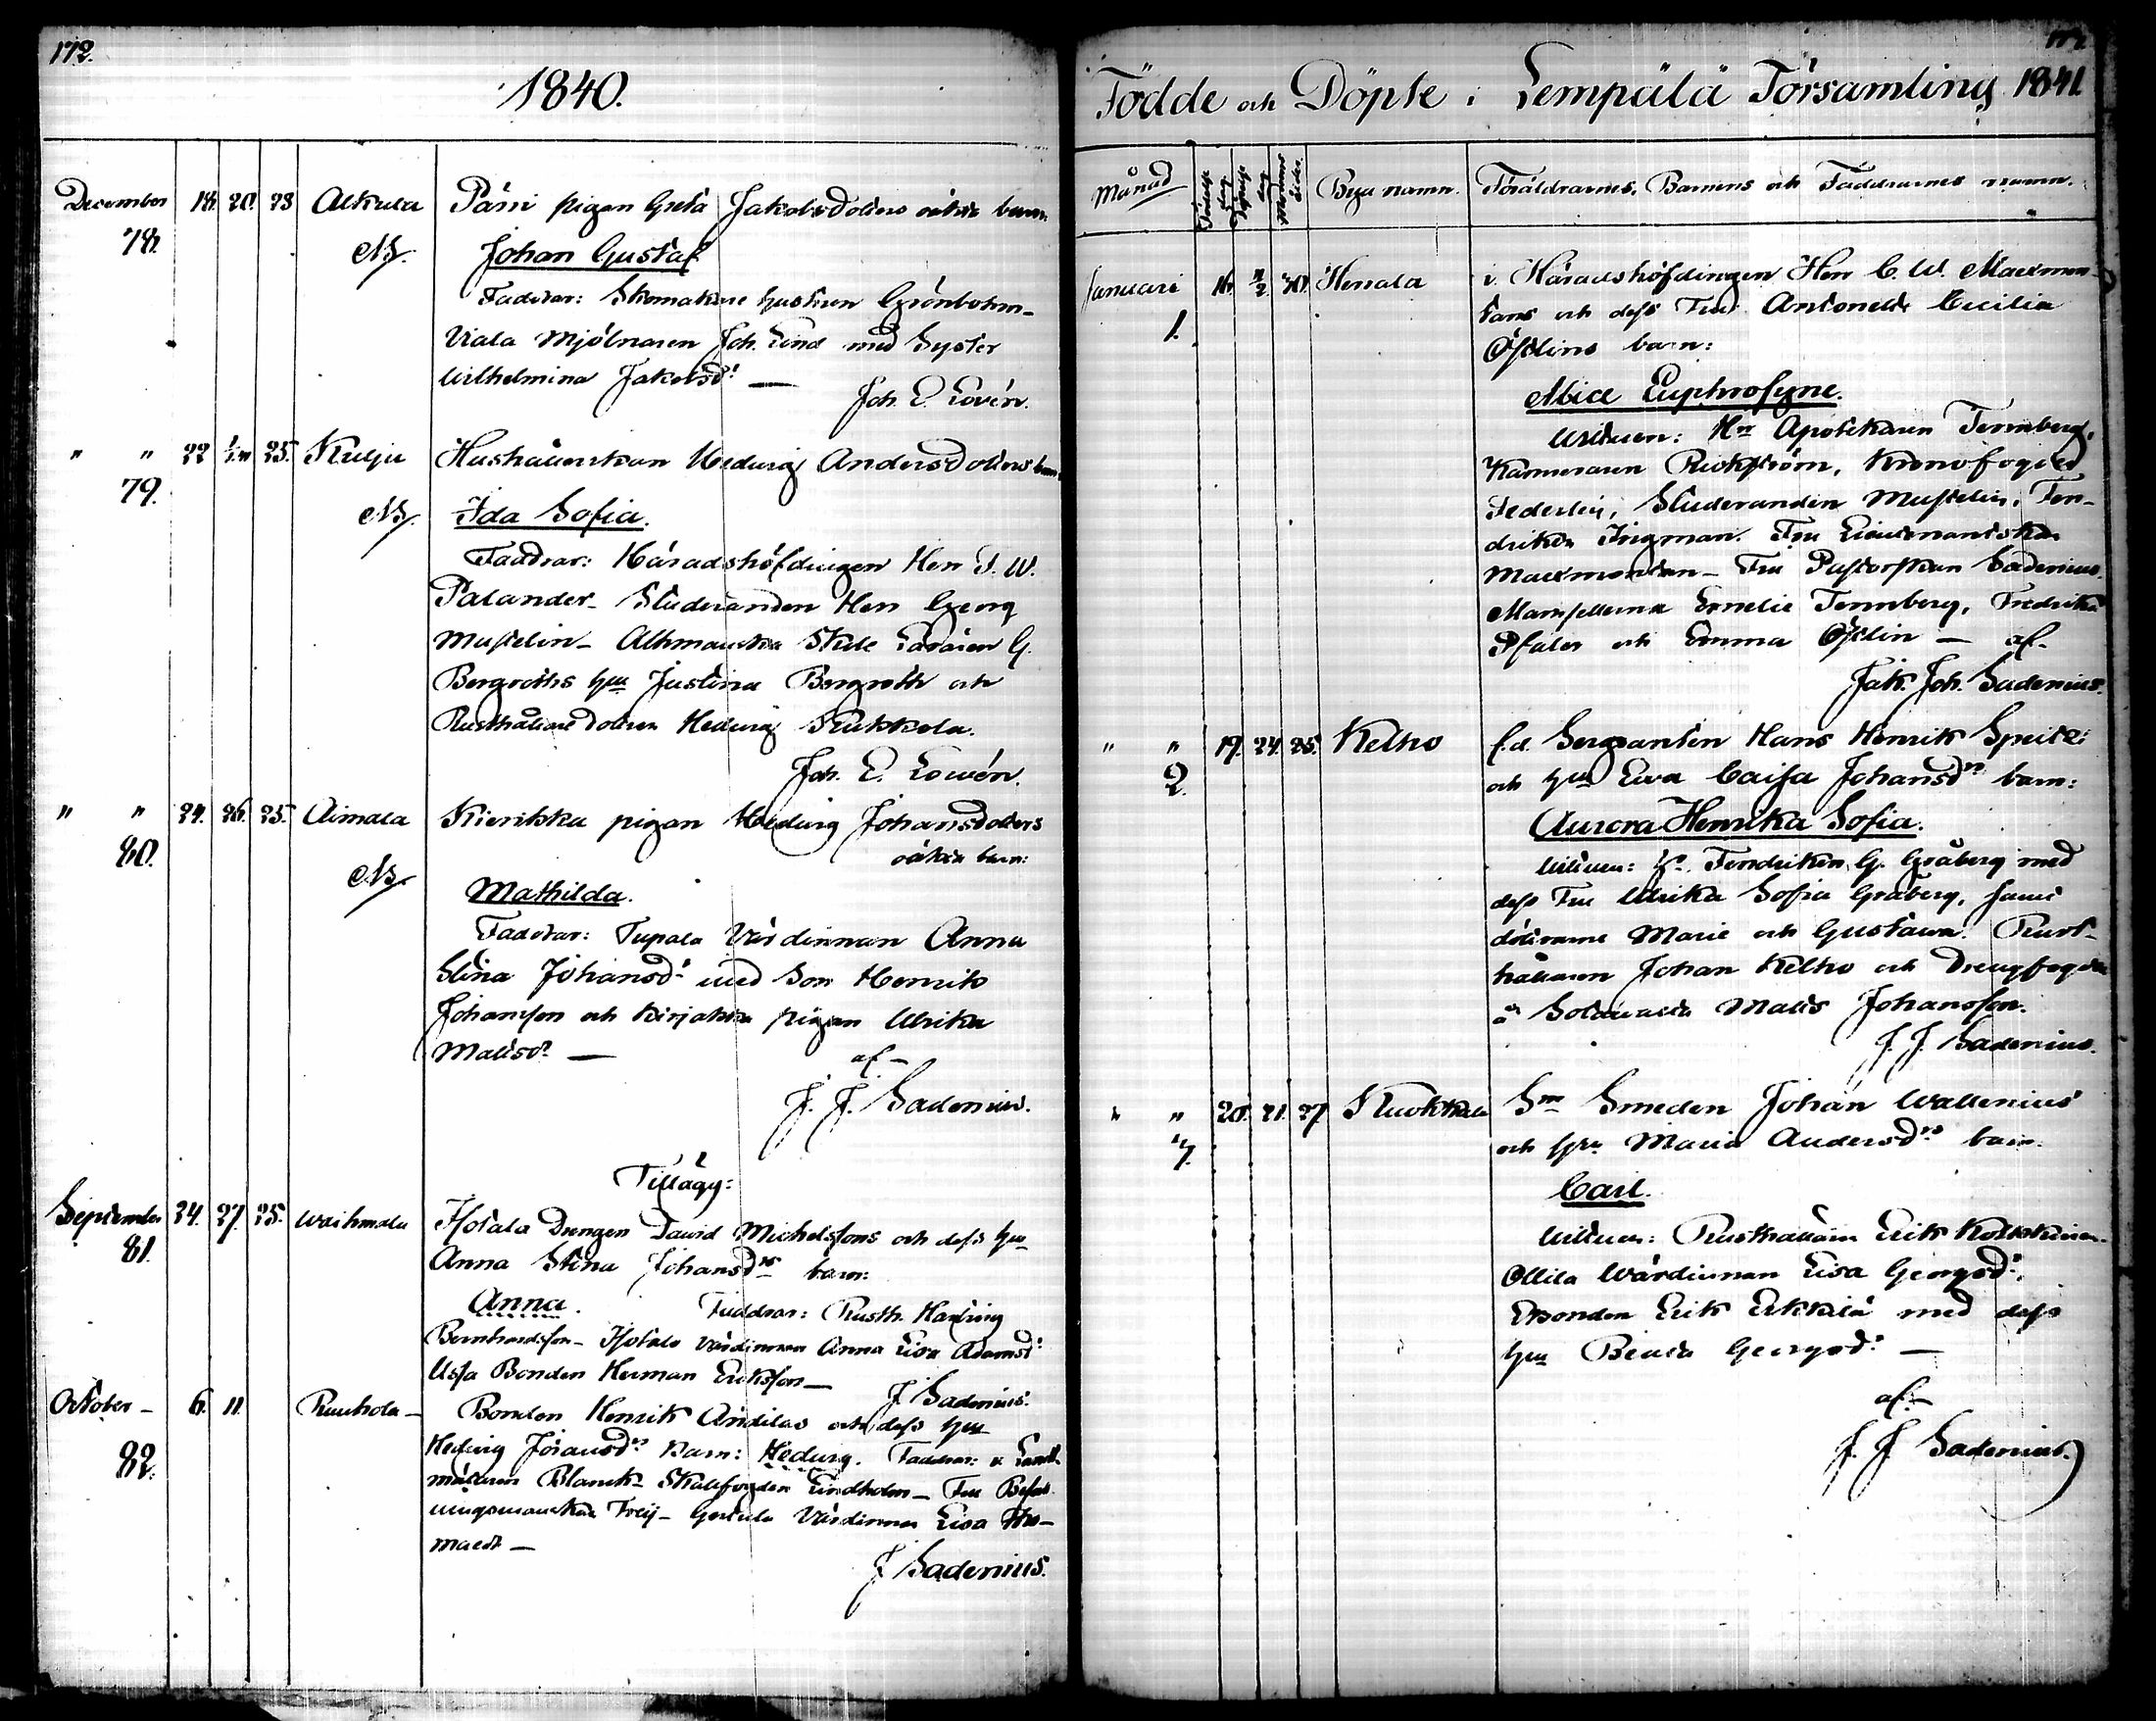 172.
1840.
December 18. 20. 23 Alkula Päri pigan Greta Jakobsdotters oäkta barn
78. NB. Johan Gustaf
Faddrar: Skomakare hustrun Grönholm_
Viala Mjölnaren Joh. Lind med Syster
Wilhelmina Jakobsd: —
Joh. E. Lovén.
" " 22 25. Kulju Hushållerskan Hedvig Andersdotters barn
79.
NB. Ida Sofia.
Faddrar: Häradshöfdingen Herr J. W.
Palander_ Studeranden Herr Georg
Mustelin_ Skole Läraren G.
Bergroths hu Justina Bergroth och
Rusthållare dottren Hedvig Kukkola.
Joh. E. Lowén.
" " 24. 26. 25. Aimala Kierikka pigan Hedvig Johansdotters
80. oäkta barn:
NB. Mathilda.
Faddrar: Tupala Värdinnan Anna
Stina Johansd: med Son Henrik
Johansson och pigan Ulrika
Matisd: — af—
J. J. Sadenius.
Tillägg:
September 24. 27. 25. Waihmala Isotala Drengen David Michelssons och dess hu
81. Anna Stina Johansd:rs barn:
Anna. Faddrar: Rusth.
Bernhardsson_ Isotalo värdinnan Anna Lisa Adamsd:
Ussa Bonden Herman Eriksson_
J. Sadenius.
October_ 6. 11. Ruuhola_ Bonden Henrik Andilas och dess hu
82. Hedvig Göransd:rs Barn: Hedvig. Faddrar: v. Landt
mätaren Blanck_ Skallfogden Lindholm_ Fru Befall
ningsmanskan Freij_ Värdinnan Lisa Tho-
maedr —
J. Sadenius.
Födde och Döpte i Lempälä Församling 1841
Månad Födelse dag Döpelse dag Modrens ålder Bya namn. Föräldrarnes, Barnens och Faddrarnes namn.
Januari 16. 2 30. Herrala v. Häradshöfdingen Herr C. W. Maexmon
1. tans och dess Fru Antonetta Cecilia
Östlins barn:
Alice Euphrosyne.
Witnen: Hrr Apotekaren Tennberg,
Kamreraren Rickström, Kronofogden
Federley, Studeranden Mustelin, Fen-
driken Ingman. Fru Lieutenantskan
Maexmontan_ Fru Pastorskan Sadenius.
Mamsellerna Emelie Tennberg, Fredrika
Pfaler och Emma Östlin — af—
Jak. Joh. Sadenius.
" " 19. 24. 25. Kelho f.d. Sergeanten Hans Henrik Speitz
2. och hu Eva Caisa Johansd:rs barn:
Aurora Henrika Sofia.
Witnen: Hr. Fendriken G. Gråberg med
dess Fru Ulrika Sofia Gråberg, samt
döttrarne Marie och Gustawa. Rust-
hållaren Johan Kelho och Drengfogden
å Sotavalta Matts Johansson.
J. J. Sadenius.
" " 20. 21. 27. Kuokkala Sn Smeden Johan Wallenius
3. och hu Maria Andersd:rs barn:
Carl.
Witnen: Rusthållaren Erik
Ollila Wärdinnan Lisa Georgsd:,
Bonden Erik Erkkilä med dess
hu Beata Georgsd: —
af—
J. J. Sadenius.